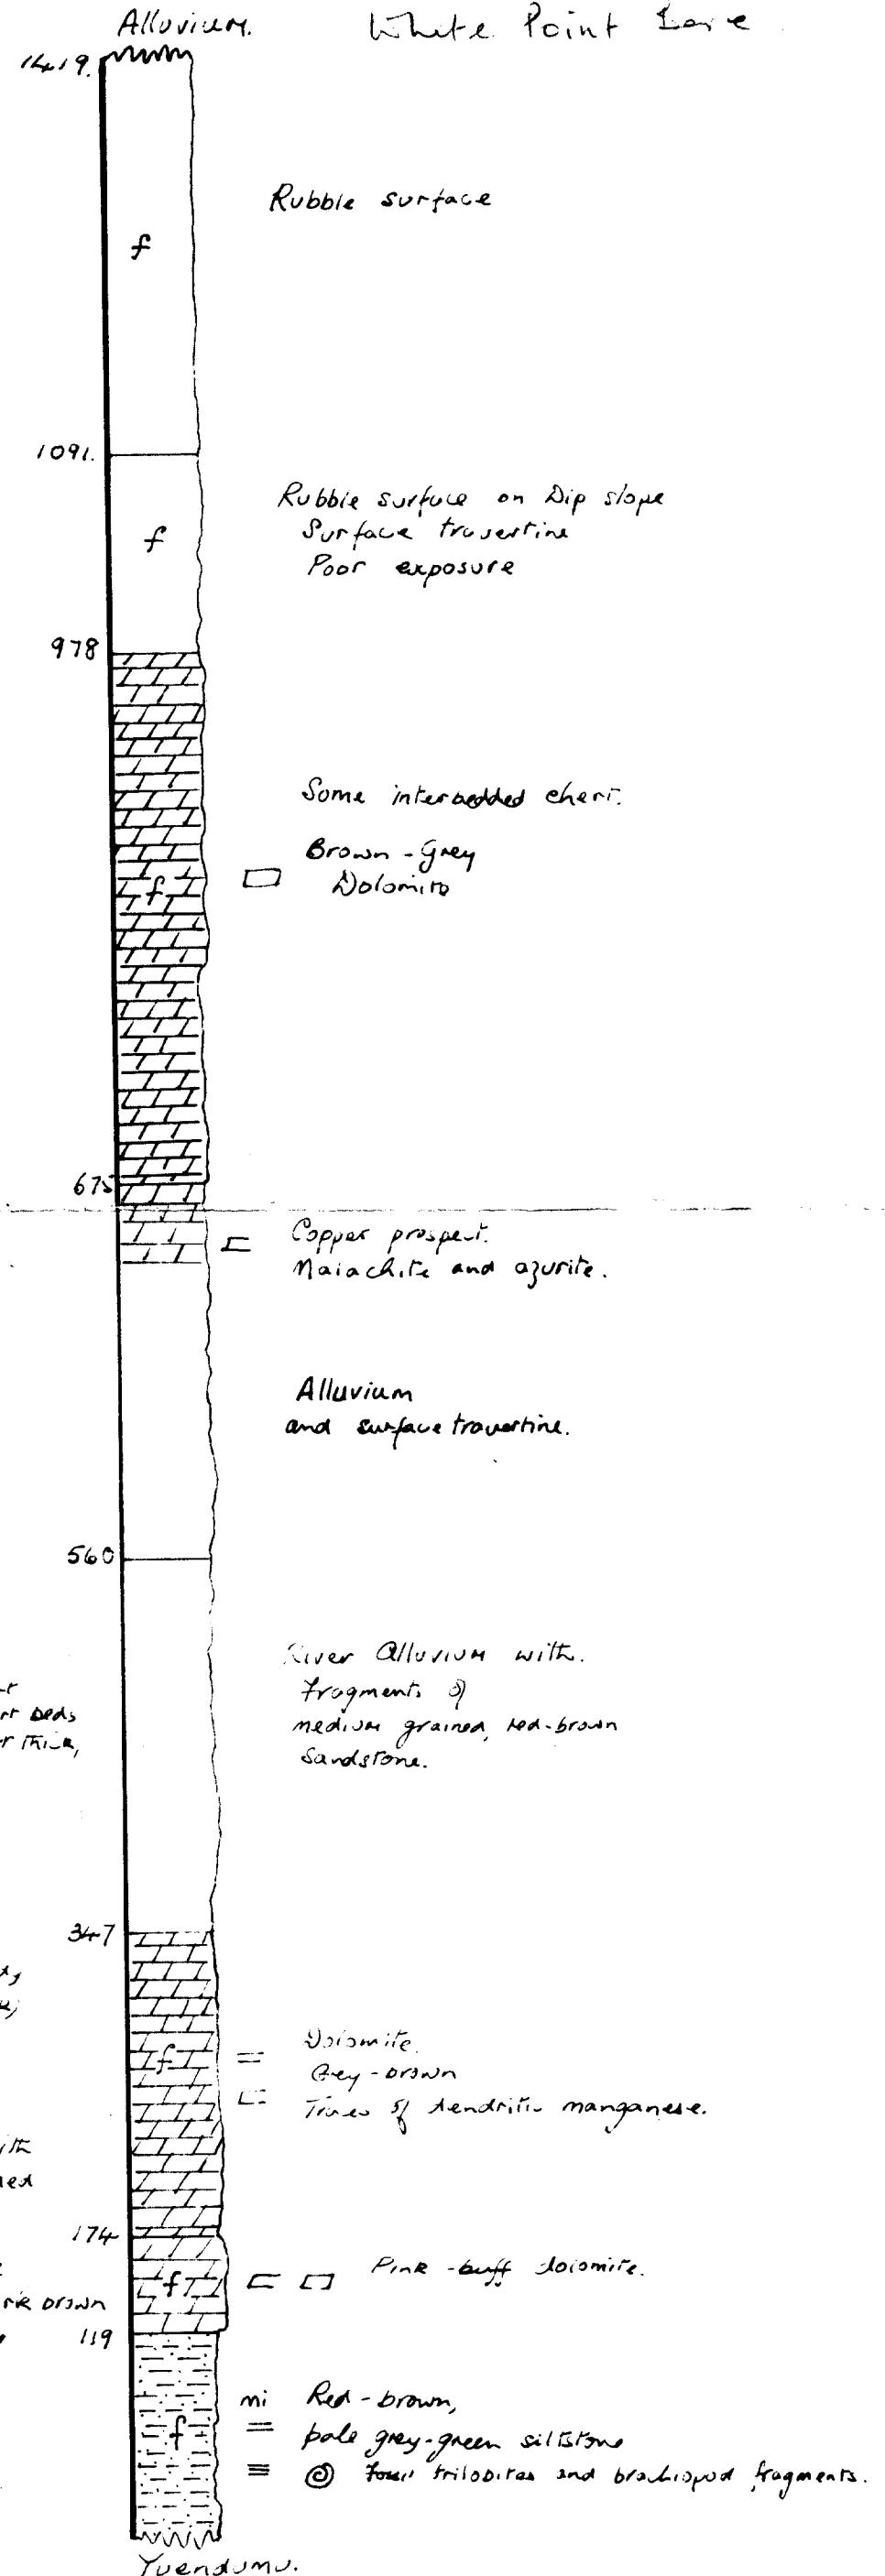 Alluvium. White Point
1419.
Rubble surface
f
1091.
Rubble surface on Dip slope
Surface travertine
Poor exposure
f
978
Some interbedded chert.
Brown - Grey
Dolomite
f
675
Copper prospect.
Malachite and azurite.
Alluvium
and surface travertine.
560
River Alluvium with.
fragments of
medium grained, red-brown
Sandstone.
beds
thick,
347
f
Dolomite.
Grey - brown
Traces of dendritic manganese.
174
Pink - buff dolomite.
f
brown
119
mi Red - brown,
pale grey-green siltstone
f
fossil trilobites and brachiopod fragments.
Yuendumu.